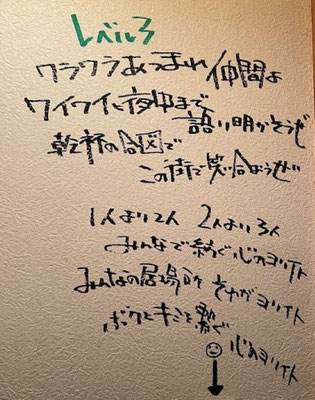 レベル3
ワラワラあつまれ仲間よ
ワイワイと夜中まで
語り明かそうぜ
乾杯の合図で
この街で笑い合おうぜ
1人より2人 2人より3人
みんなで紡ぐ心のヨリイト
みんなの居場所 それがヨリイト
ボクとキミを繋ぐ
心のヨリイト